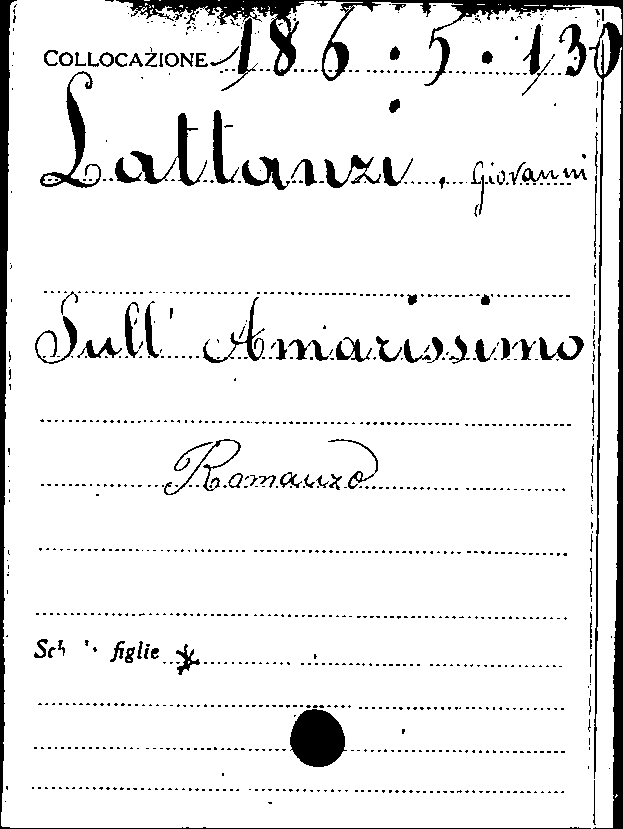 COLLOCAZIONE 186.5.130
Lattanzi, Giovanni
Sull' Amarissimo
Romanzo
figlie